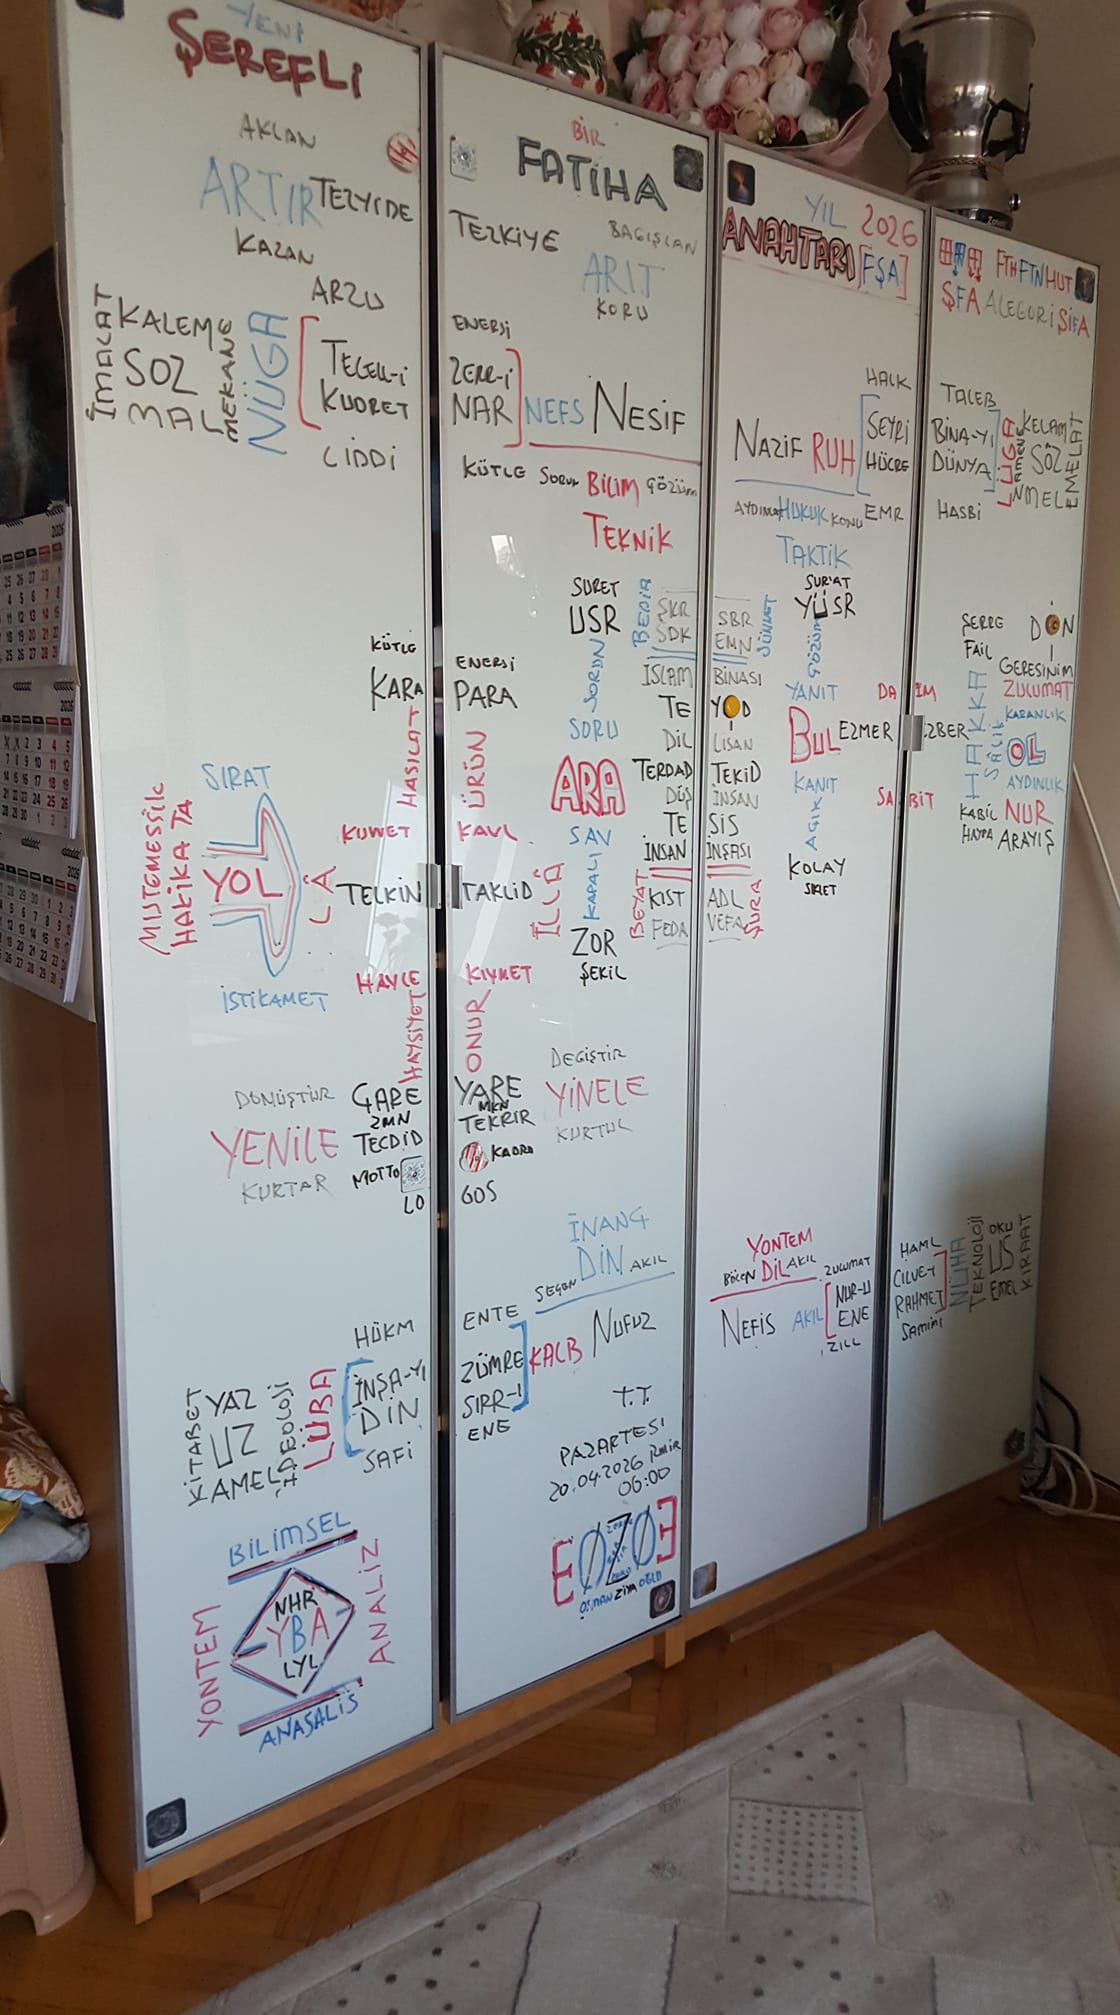 YENİ
ŞEREFLİ
AKLAN
ARTIR TEZYİDE
KAZAN
ARZU
İMALAT
KALEME
SÖZ
MAL
MEKANE
NÜGA
TECELL-İ
KUDRET
CİDDİ
KÜTLE
KARA
HASILAT
SIRAT
MÜTEMESSİK
HAKİKA TA
YOL
LÂ
KUVVET
TELKİN
İSTİKAMET
HAYCE
HAYSİYET
DÖNÜŞTÜR
ÇARE
ZMN
YENİLE
TECDİD
KURTAR
MOTTO
LO
HÜKM
KİTABET
YAZ
UZ
KAMEL
İDEOLOJİ
LÜBA
İNŞA-YI
DİN
SAFİ
BİLİMSEL
YÖNTEM
NHR
YBA
LYL
ANALİZ
ANASALIS
BİR
FATİHA
TEZKİYE
BAĞIŞLAN
ARIT
KORU
ENERJİ
ZERR-İ
NAR
NEFS NESİF
KÜTLE SORUN BİLİM ÇÖZÜM
TEKNİK
SURET
USR
BEDİR
ŞKR
SDK
İSLAM
ENERJİ
PARA
SORUN
SORU
TE
DİL
ÜRÜN
ARA
TERDAD
DÜŞ
KAVL
SAV
TE
İNSAN
TAKLİD
İLLÂ
KAPALI
BEYAT
KIST
FEDA
ZOR
ŞEKİL
KIYMET
ONUR
DEĞİŞTİR
YARE
MKN
TEKRİR
YİNELE
KURTUL
KADRO
GOS
İNANÇ
DİN
SEÇEN AKIL
ENTE
ZÜMRE
SIRR-I
ENE
KALB NUFUZ
T.T.
PAZARTESİ
20.04.2026 İZMİR
06:00
EOZO3
OSMAN ZİYA OĞLU
YIL 2026
ANAHTARI [FŞA]
HALK
NAZİF RUH
SEYRİ
HÜCRE
AYDIN HUKUK KONU EMR
TAKTİK
SUR'AT
YÜSR
SBR
EMN
SÜNNET
ÇÖZÜM
BİNASI
YANIT
DA
YOD
LİSAN
BUL
EZMER
TEKİD
İNSAN
KANIT
SA
SİS
İNŞASI
AÇIK
KOLAY
SIKLET
ADL
VEFA
ŞURA
YÖNTEM
BÖLEN DİL AKIL
ZULUMAT
NEFİS AKIL
NUR-U
ENE
ZILL
FTH FTN HUT
ŞFA ALEGORİ ŞİFA
TALEB
BİNA-YI
DÜNYA
HASBİ
LÜGA
KELAM
SÖZ
AMEL
EMELAT
ŞEREF
FAİL
DON
GERESİNİM
İM
ZULUMAT
HAKKA
KARANLIK
EZBER
SALİK
OL
AYDINLIK
BİT
KABİL
NUR
HAPA
ARAYIŞ
HAML
CİLVET
RAHMET
SAMİMİ
NÜHA
TEKNOLOJİ
OKU
US
EMEL
KIRAAT
2026
2026